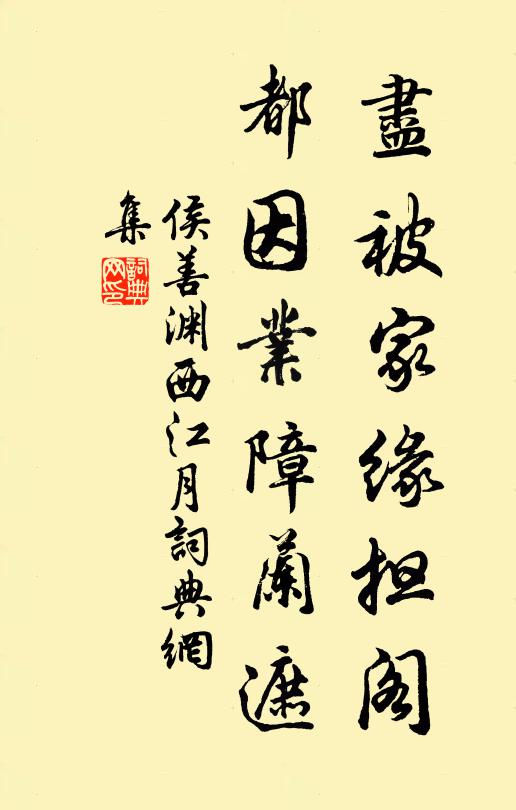 盡被家緣担阁
都因業障蘭遮
侯善渊西江月詞典網
集
詞典
网印